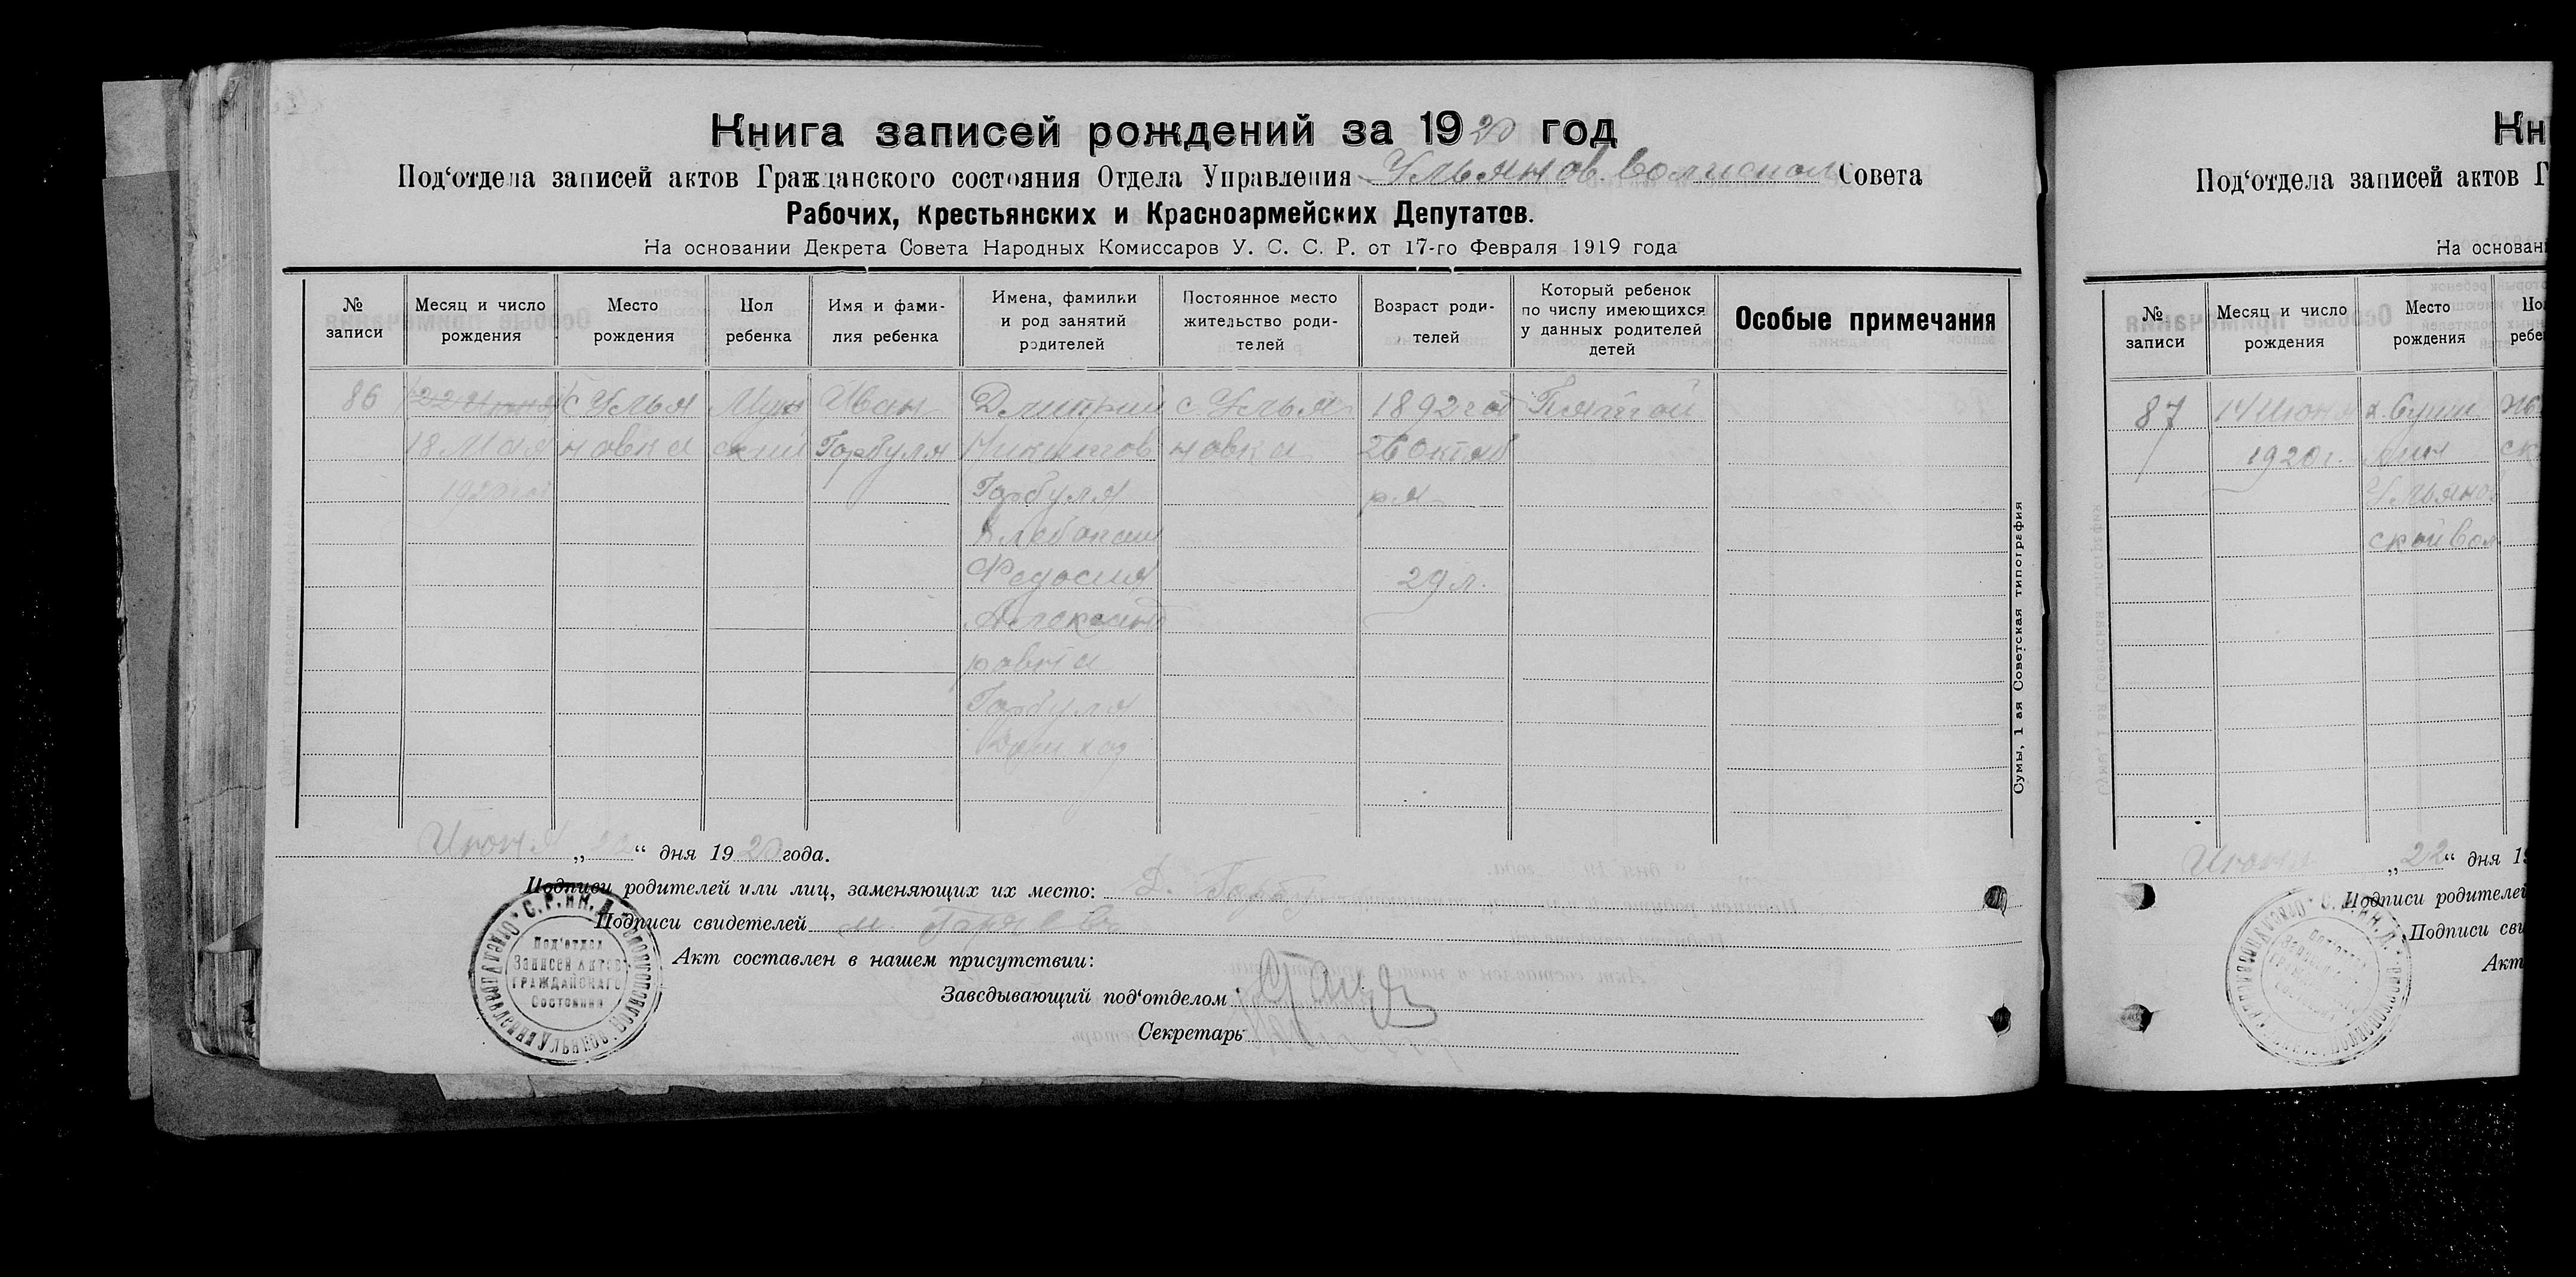 Книга записей рождений за 1920 год
Под‘отдела записей актов Гражданского состояния Отдела Управления Ульянов. Волисполк Совета
Рабочих, Крестьянских и Красноармейских Депутатов.
На основании Декрета Совета Народных Комиссаров У. С. С. Р. от 17-го Февраля 1919 года
№ записи
Месяц и число рождения
Место рождения
Пол ребенка
Имя и фами-
лия ребенка
Имена, фамилии
и род занятий
родителей
Постоянное место
жительство роди-
телей
Возраст роди-
телей
Который ребенок
по числу имеющихся
у данных родителей
детей
Особые примечания
86
22 Июня
18 Мая
1920 год
с Улья
новка
Муж
ский
Иван
Горбуля
Дмитрий
Никитов
Горбуля
Хлебопаш
Федосия
Александ
ровна
Горбуля
Домход
с Улья
новка
1892 год
26 октяб
ря
29 л.
Пятой
Сумы, 1 ая Советская типография
Июня „22“ дня 1920 года.
Подписи родителей или лиц, заменяющих их место: Д. Горбу
Подписи свидетелей М.
Акт составлен в нашем присутствии:
Заведывающий под‘отделом
Секретарь
С.Р. и К.Д.
Отдел Управления Ульянов. Волисполкома
Под‘отдел
Записей Актов
Гражданского
Состояния
Кн
Под‘отдела записей актов Г
На основани
№
записи
Месяц и число
рождения
Место
рождения
Пол
ребе
87
14 Июня
1920 г.
Ульянов
ской вол
ск
Июня „22“ дня 19
Подписи родителей
Подписи сви
Акт